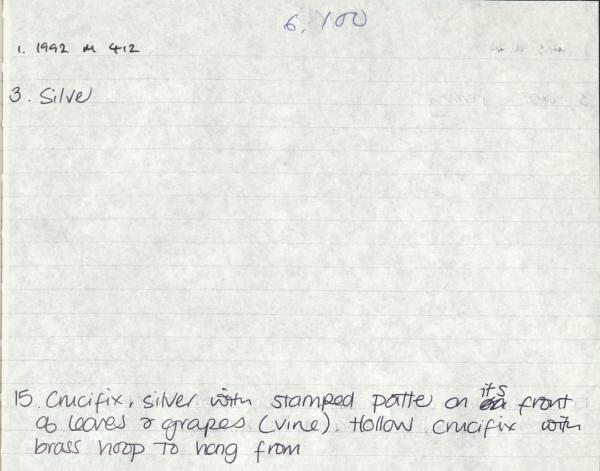 6,100
1. 1992 M 412
3. Silve
15. Crucifix, silver with stamped patte on its front
of leaves & grapes (vine). Hollow crucifix with
brass hoop to hang from